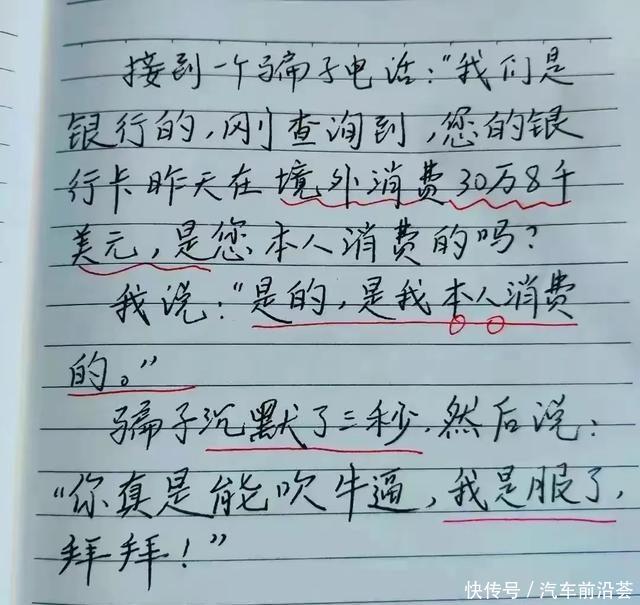 接到一个骗子电话:"我们是
银行的,刚查询到,您的银
行卡昨天在境外消费30万8千
美元,是您本人消费的吗?
我说:"是的,是我本人消费
的。"
骗子沉默了三秒,然后说:
"你真是能吹牛逼,我是服了,
拜拜!"
快传号/汽车前沿荟